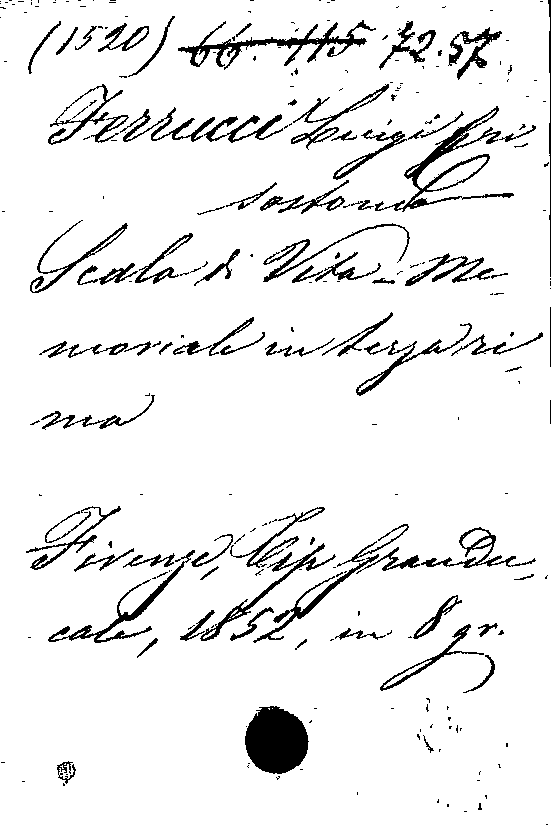 (1520) 66. 115 72.57
Ferrucci Luigi Cri-
sostomo
Scala di Vita - Me-
moriale in terza ri-
ma
Firenze, Tip Grandu-
cale, 1852, in 8 gr.